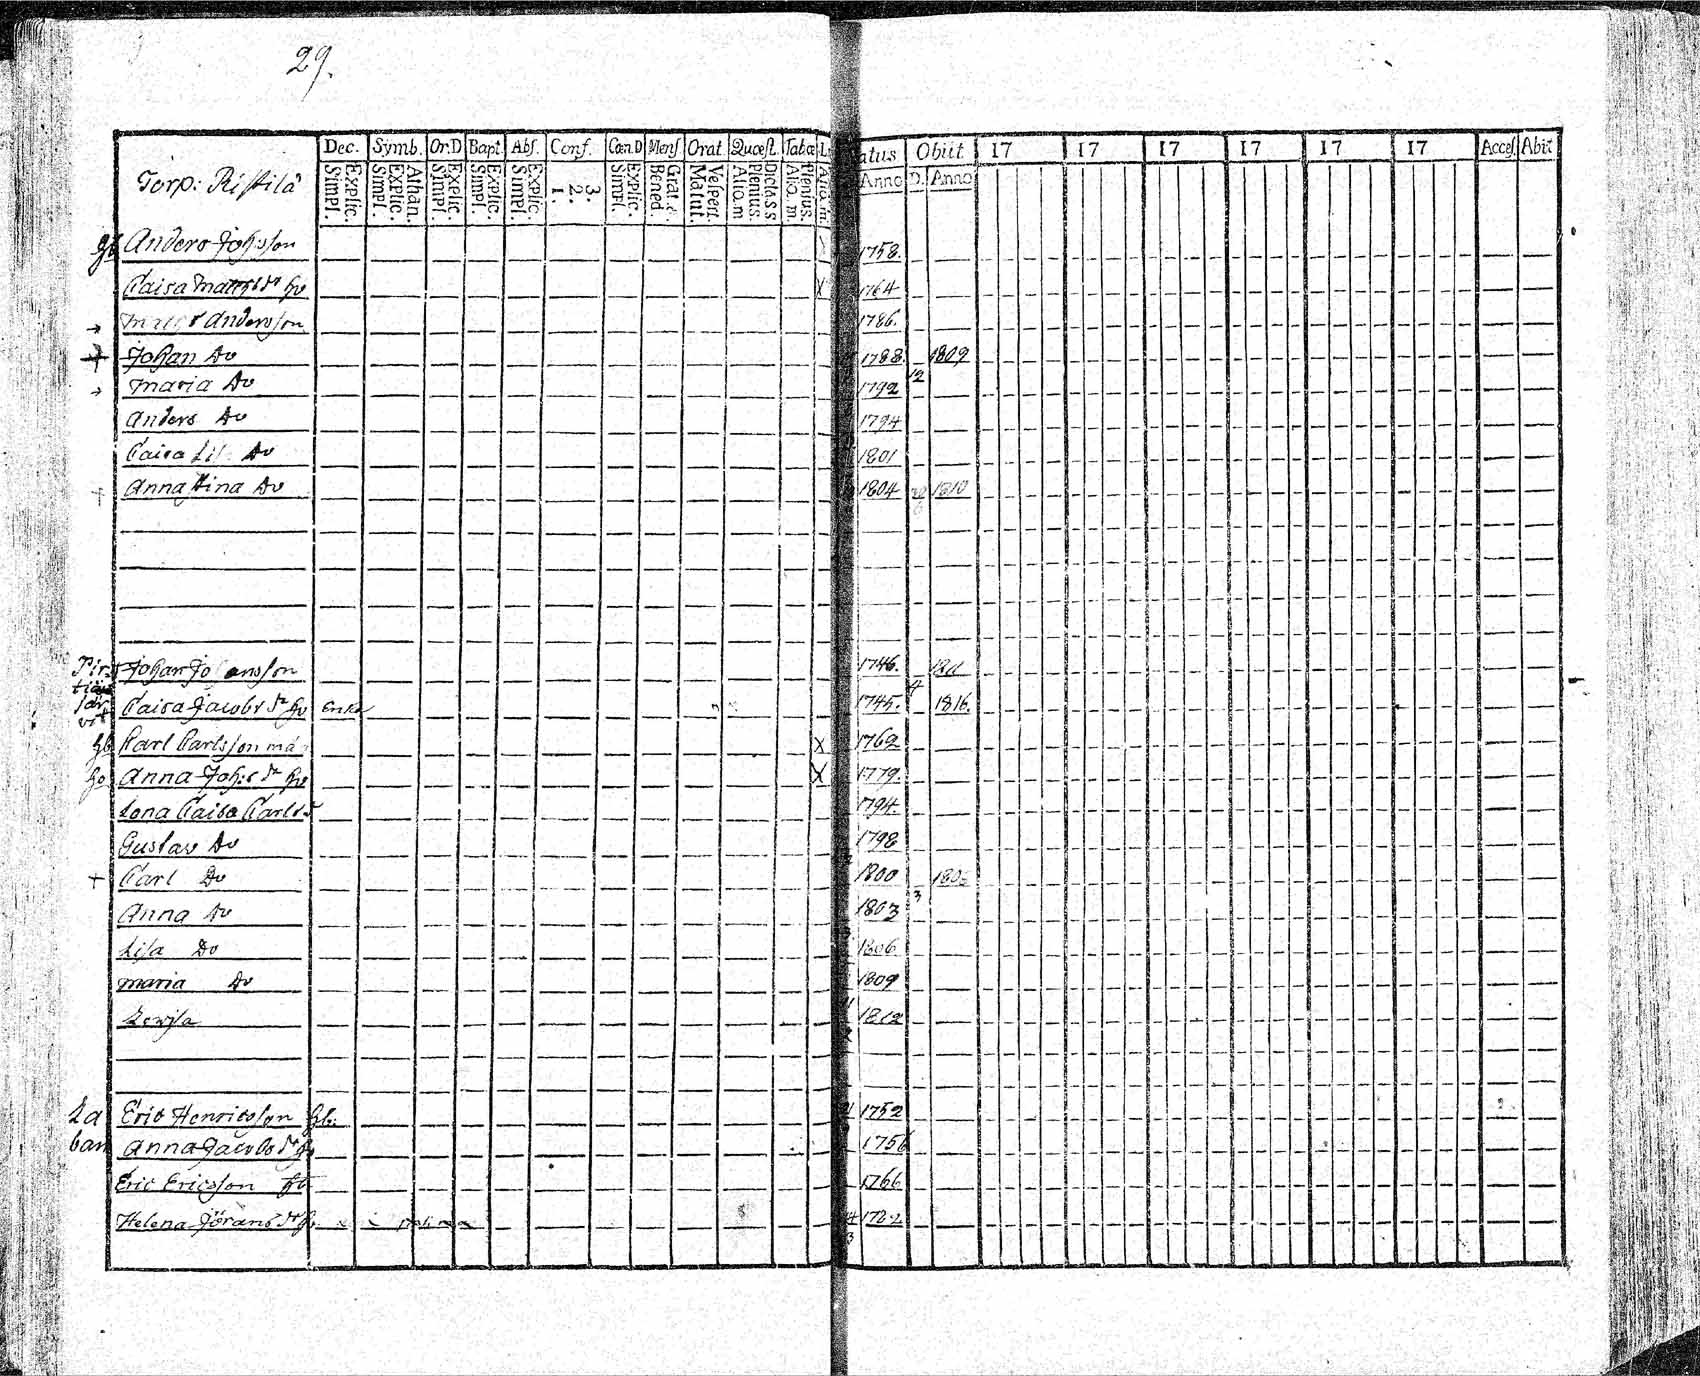 29.
Dec. Symb. Or.D Bapt. Abs. Conf. Cœn.D Mens Orat. Quæst. Tabœ atus Obiit. 17 17 17 17 17 17 Acces. Abit
Torp: Ristilä Explic. Simpl. Athan. Explic. Simpl. Explic. Simpl. Explic. Simpl. Explic. Simpl. 3. 2. 1. Explic. Simpl. Grat. a. Bened. Vespert. Matut. Dicta S S Plenius. Alio. m Plenius. Alio. m. Anno D. Anno
Anders Johsson 1758.
Caisa Matts dr hu X 1764
Andersson 1786.
+ Johan Do 1788. 1809
Maria Do 1792 12
Anders Do 1794
Caisa Do 1801
+ Anna Do 1804 1810
Johan Johansson 1746.
Caisa Jacobs dr hu 1745. 4 1816.
Carl Carlsson X 1762
Anna Johs dr hu X 1779.
Lena Caisa Carls d 1794.
Gustav Do 1798
+ Carl Do 1800
Anna Do 1803 3
Lisa Do 1806
Maria Do 1809
Lovisa 1812
La Eric Henricsson hb. 1752
ban Anna Jacobs dr hu 1756
Eric Ericsson hb 1766
Helena Jörans dr hu